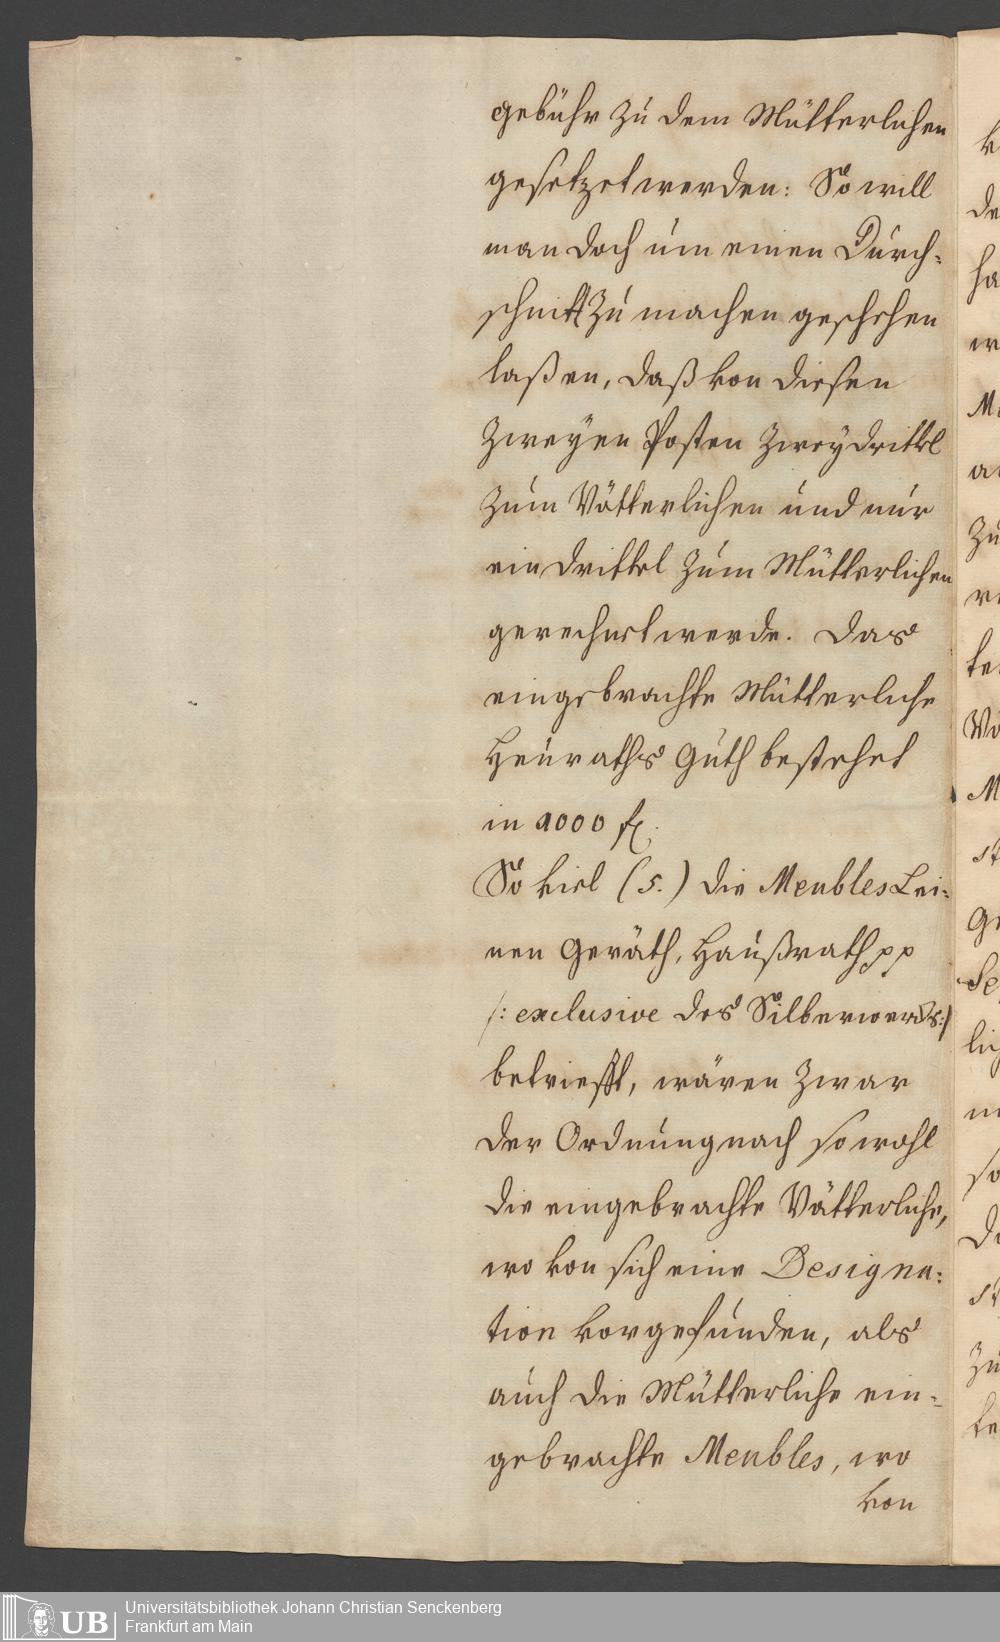 gebühr zu dem Mütterlichen
gesetzet werden: So will
man doch um einen Durch-
schnitt zu machen geschehen
laßen, daß von diesen
zweyen Posten zweydrittel
zum Vätterlichen und nur
ein drittel zum Mütterlichen
gerechnet werde. Das
eingebrachte Mütterliche
Heuraths Guth bestehet
in 9000 f.
So viel (5.) die Meubles Lei-
nen Geräth, Haußrath pp
/: exclusive des Silberwercks :/
betriefft, wären zwar
der Ordnung nach so wohl
die eingebrachte Vätterliche,
wo von sich eine Designa-
tion vorgefunden, als
auch die Mütterliche ein-
gebrachte Meubles, wo
von
UB
Universitätsbibliothek Johann Christian Senckenberg
Frankfurt am Main